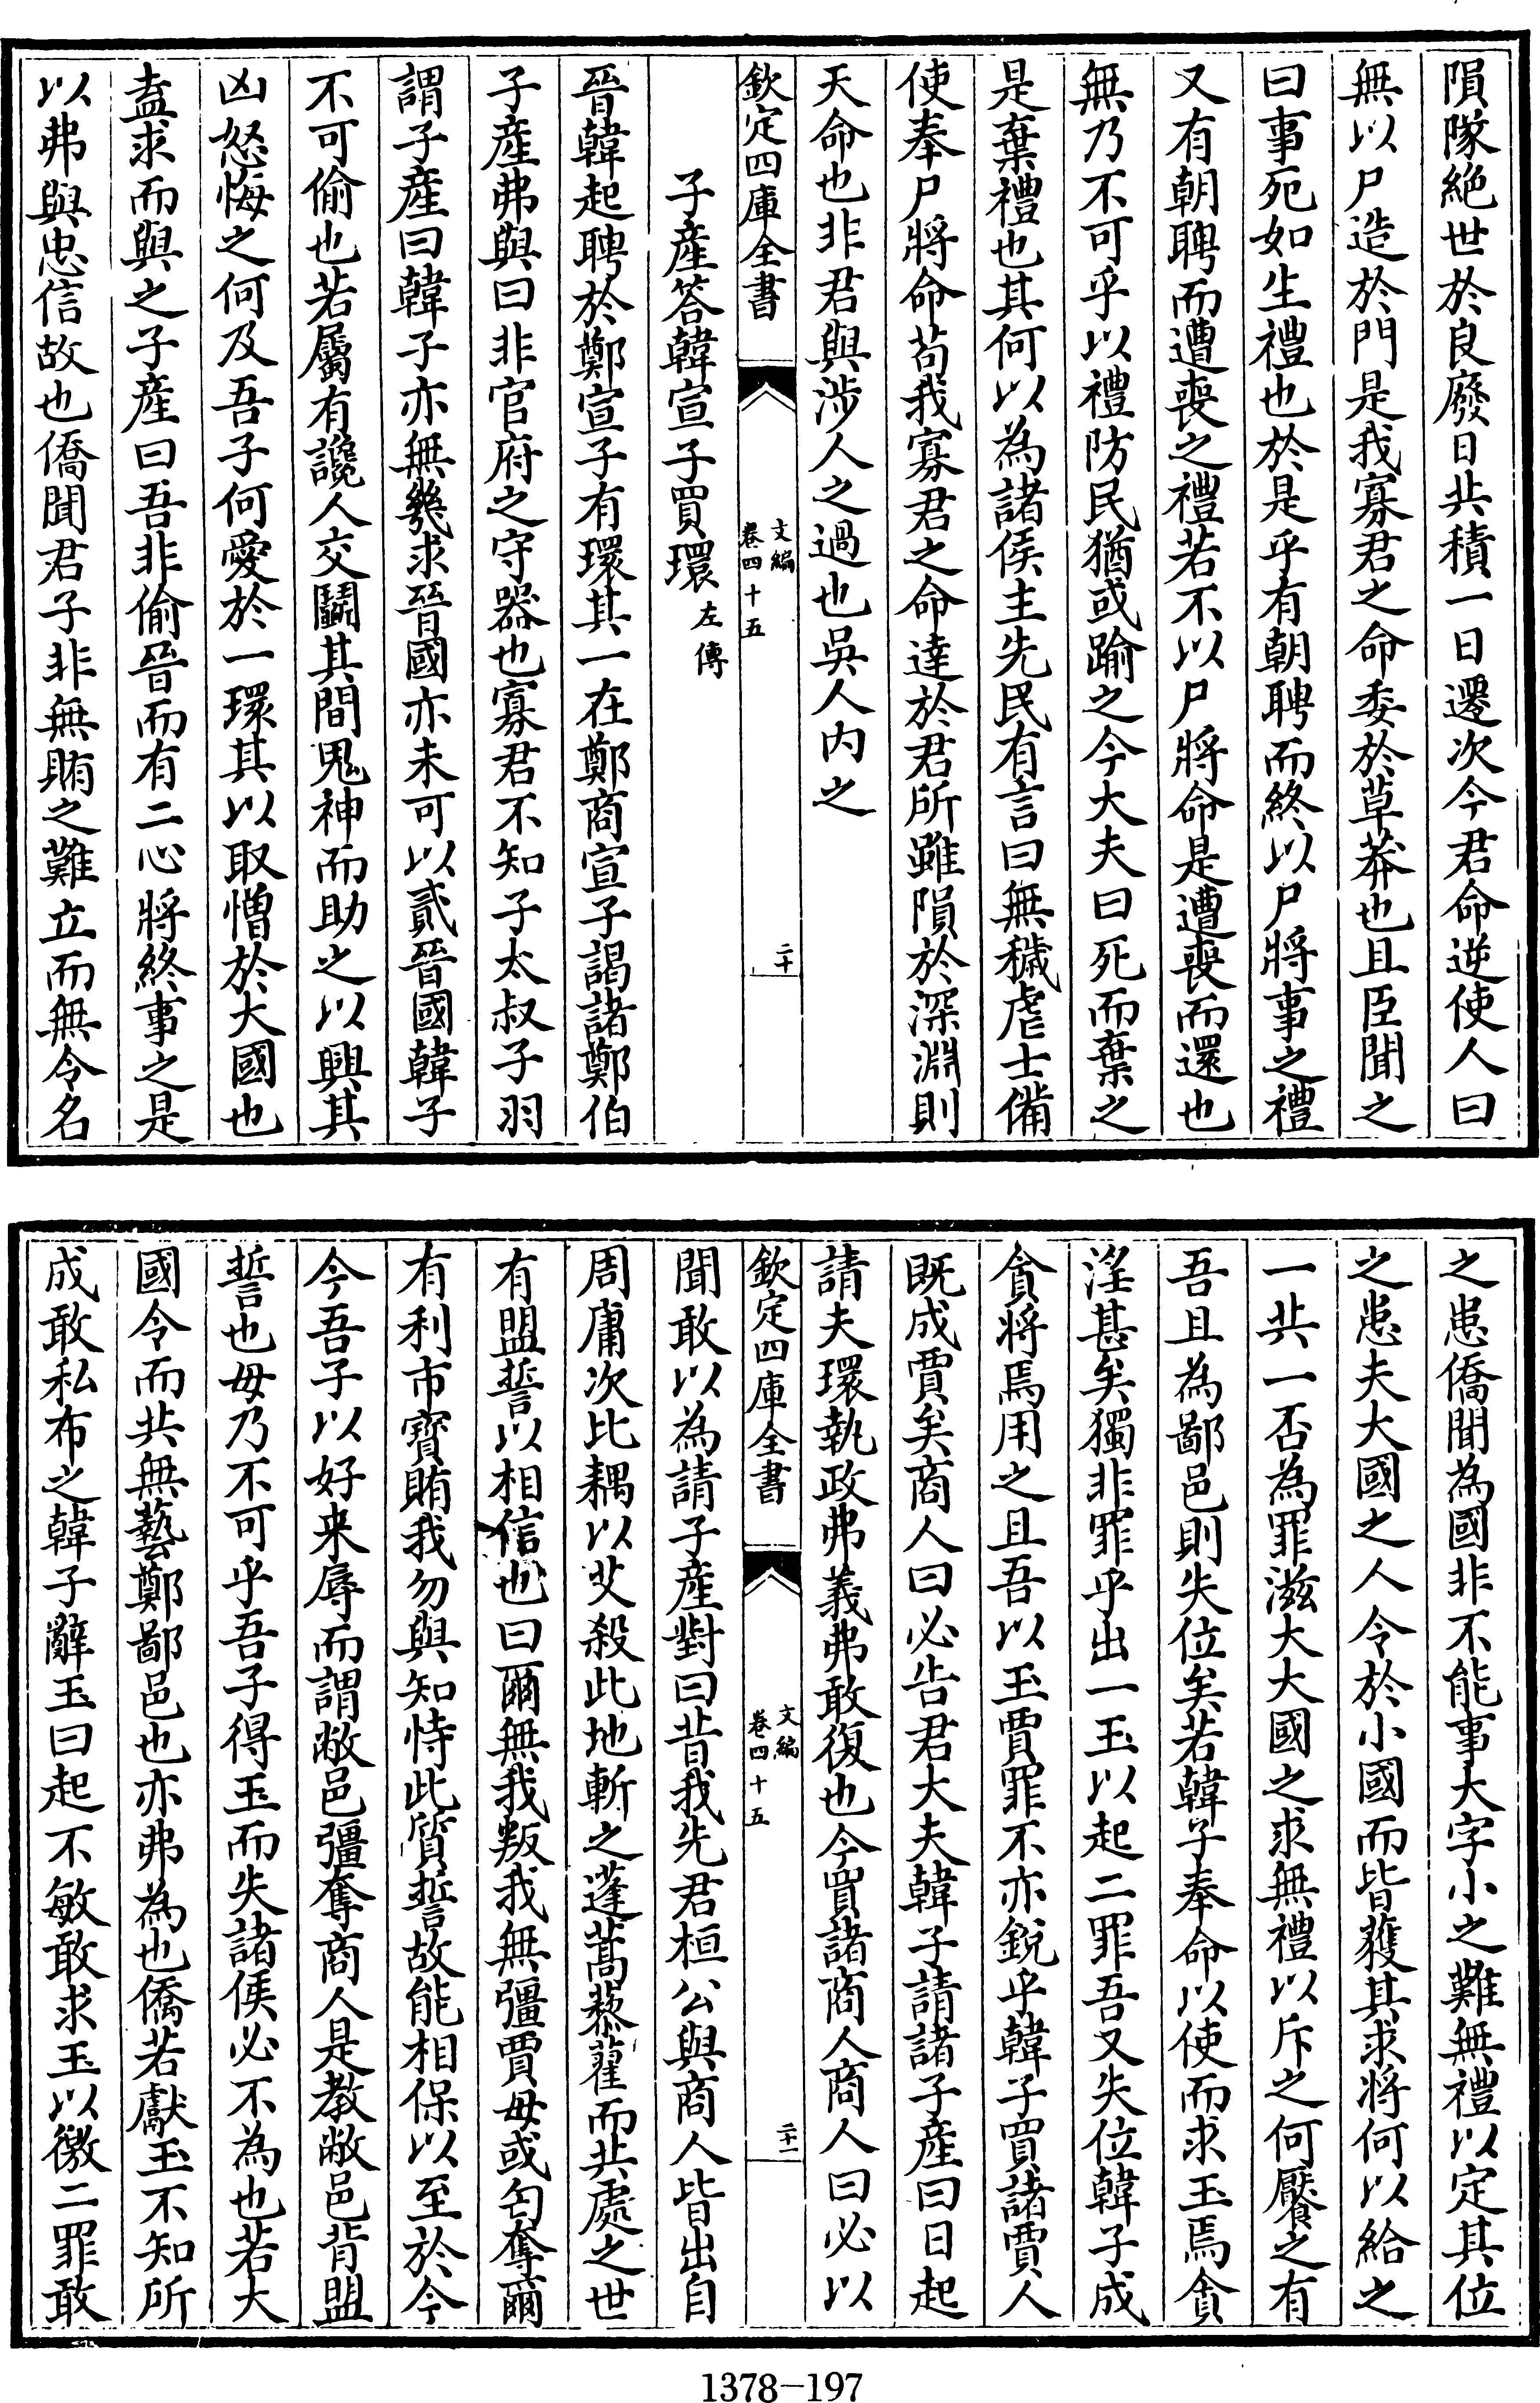 隕隊絶世於良廢日共積一日遷次今君命逆使人曰
無以尸造於門是我寡君之命委於草莽也且臣聞之
曰事死如生禮也於是乎有朝聘而終以尸將事之禮
又有朝聘而遭喪之禮若不以尸將命是遭喪而還也
無乃不可乎以禮防民猶或踰之今大夫曰死而棄之
是棄禮也其何以為諸侯主先民有言曰無穢虐士備
使奉尸將命苟我寡君之命達於君所雖隕於深淵則
天命也非君與涉人之過也吳人内之
欽定四庫全書
文編
卷四十五
二十
子產答韓宣子買環左傳
晉韓起聘於鄭宣子有環其一在鄭商宣子謁諸鄭伯
子產弗與曰非官府之守器也寡君不知子太叔子羽
謂子產曰韓子亦無幾求晉國亦未可以貳晉國韓子
不可偷也若屬有讒人交鬭其間鬼神而助之以興其
凶怒悔之何及吾子何愛於一環其以取憎於大國也
盍求而與之子產曰吾非偷晉而有二心將終事之是
以弗與忠信故也僑聞君子非無賄之難立而無令名
之患僑聞為國非不能事大字小之難無禮以定其位
之患夫大國之人令於小國而皆獲其求將何以給之
一共一否為罪滋大大國之求無禮以斥之何饜之有
吾且為鄙邑則失位矣若韓子奉命以使而求玉焉貪
淫甚矣獨非罪乎出一玉以起二罪吾又失位韓子成
貪將焉用之且吾以玉賈罪不亦銳乎韓子買諸賈人
既成賈矣商人曰必告君大夫韓子請諸子產曰日起
請夫環執政弗義弗敢復也今買諸商人商人曰必以
欽定四庫全書
文編
卷四十五
二十一
聞敢以為請子產對曰昔我先君桓公與商人皆出自
周庸次比耦以艾殺此地斬之蓬蒿藜藿而共處之世
有盟誓以相信也曰爾無我叛我無彊賈毋或匄奪爾
有利市寶賄我勿與知恃此質誓故能相保以至於今
今吾子以好来辱而謂敝邑彊奪商人是教敝邑背盟
誓也毋乃不可乎吾子得玉而失諸侯必不為也若大
國令而共無藝鄭鄙邑也亦弗為也僑若獻玉不知所
成敢私布之韓子辭玉曰起不敏敢求玉以徼二罪敢
1378-197